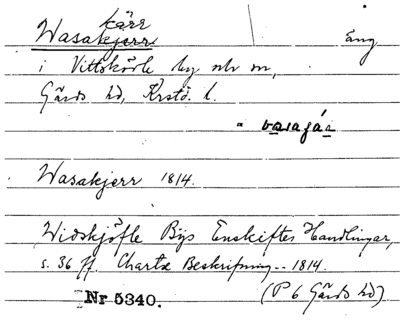 kärr
Wasakjerr Äng
i Vittskövle by och sn,
Gärds hd, Krstd. l.
vasaɟáɹ
Wasakjerr 1814.
Widskjöfle Bys Enskiftes Handlingar,
s. 36 ff. Charta Beskrifning -- 1814.
Nr 5340. (P 6 Gärds hd)